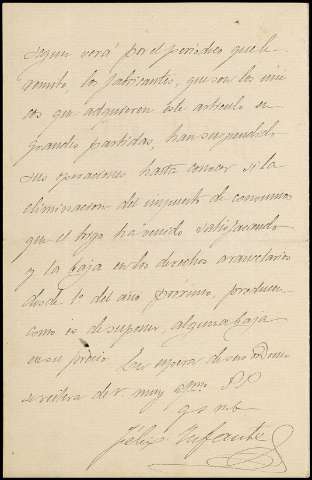 segun verá por el periodico que le
remito, los fabricantes, que son los uni
cos que adquieren este articulo en
grandes partidas, han suspendido
sus operaciones hasta conocer si la
eliminacion del impuesto de consumos
que el trigo ha venido satisfaciendo
y la baja en los derechos arancelarios
desde 1º del año próximo, producen
como es de suponer, alguna baja
en su precio. En espera de sus
se reitera de V. muy affmo. S. S.
q. s. m. b.
Félix Infante